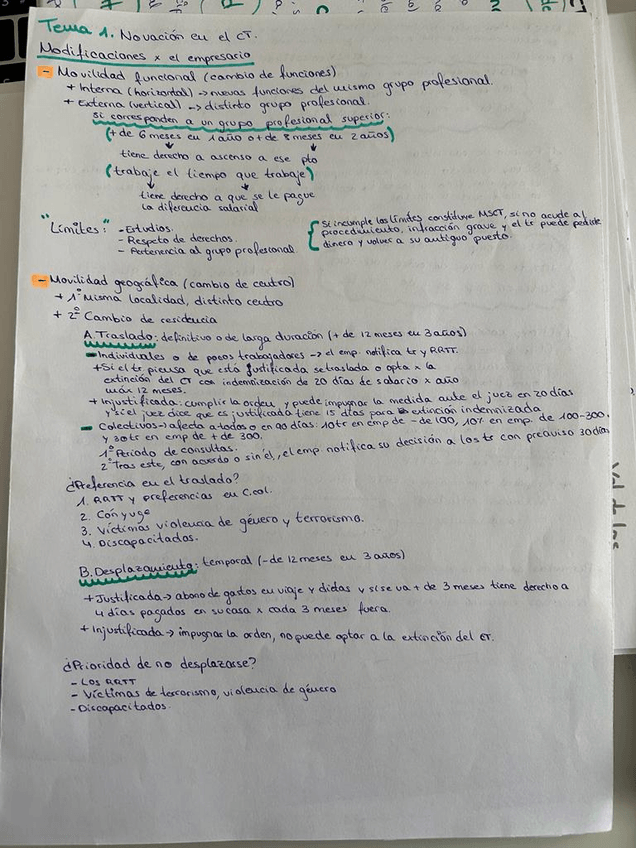 Tema 1. Novación en el CT.
Modificaciones x el empresario
- Movilidad funcional (cambio de funciones)
+ Interna (horizontal) -> nuevas funciones del mismo grupo profesional.
+ Externa (vertical) -> distinto grupo profesional.
Si corresponden a un grupo profesional superior:
(+ de 6 meses en 1 año o + de 8 meses en 2 años)
tiene derecho a ascenso a ese pto
(trabaje el tiempo que trabaje)
tiene derecho a que se le pague
la diferencia salarial
"Límites:" - Estudios.
- Respeto de derechos.
- Pertenencia al grupo profesional.
{ Si incumple los límites constituye MSCT, si no acude al
procedimiento, infracción grave y el tr puede pedirle
dinero y volver a su antiguo puesto.
- Movilidad geográfica (cambio de centro)
+ 1º Misma localidad, distinto centro
+ 2º Cambio de residencia
A. Traslado: definitivo o de larga duración (+ de 12 meses en 3 años)
- Individuales o de pocos trabajadores -> el emp. notifica tr y RRTT.
+ Si el tr piensa que está justificada se traslada o opta x la
extinción del CT con indemnización de 20 días de salario x año
máx 12 meses.
+ Injustificada: cumplir la orden y puede impugnar la medida ante el juez en 20 días
y si el juez dice que es justificada tiene 15 días para extinción indemnizada
- Colectivos -> afecta a todos o en 90 días: 10 tr en emp de - de 100, 10% en emp. de 100-300,
y 30 tr en emp de + de 300.
1º Periodo de consultas.
2º Tras este, con acuerdo o sin él, el emp notifica su decisión a los tr con preaviso 30 días
¿Preferencia en el traslado?
1. RRTT y preferencias en C.col.
2. Cónyuge
3. Víctimas violencia de género y terrorismo.
4. Discapacitados.
B. Desplazamiento: temporal (- de 12 meses en 3 años)
+ Justificada -> abono de gastos en viaje y dietas y si se va + de 3 meses tiene derecho a
4 días pagados en su casa x cada 3 meses fuera.
+ Injustificada -> impugnar la orden, no puede optar a la extinción del CT.
¿Prioridad de no desplazarse?
- Los RRTT
- Víctimas de terrorismo, violencia de género
- Discapacitados.